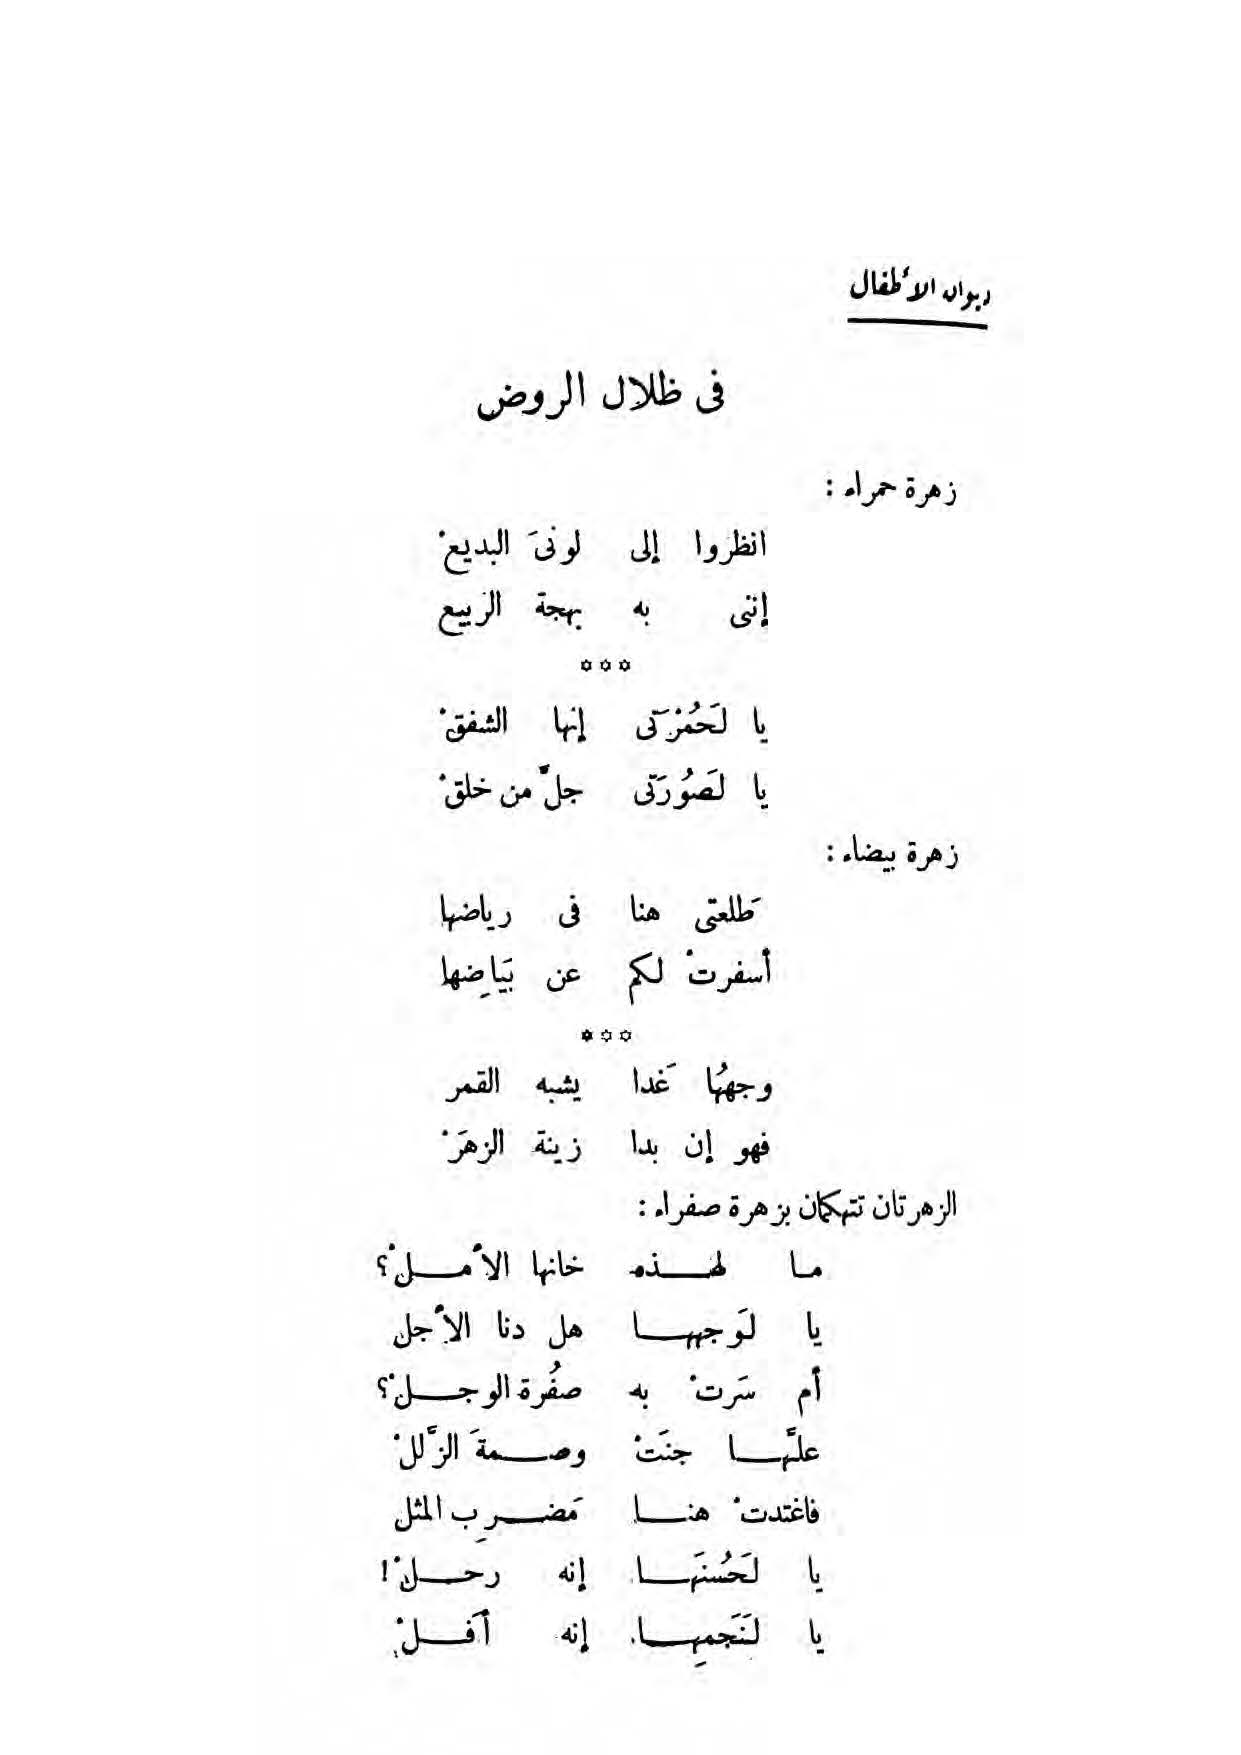 ديوان الأطفال
فى ظلال الروض
زهرة حمراء :
انظروا إلى لونىَ البديعْ
إننى به بهجة الربيع
***
يا لَحُمْرَتى إنها الشفقْ
يا لَصُورَتى جلَّ من خلقْ
زهرة بيضاء :
طَلعتى هنا فى رياضها
أسفرتْ لكم عن بَيَاضِها
***
وجهُها غَدا يشبه القمر
فهو إن بدا زينة الزهَرْ
الزهرتان تتهكمان بزهرة صفراء :
ما لهـذه خانها الأمـلْ؟
يا لَوجهها هل دنا الأجل
أم سَرتْ به صفُرة الوجـلْ؟
علَّها جنَتْ وصـمةَ الزَّللْ
فاغتدتْ هنـا مَضـرِب المثل
يا لَحُسنَها إنه رحـلْ!
يا لَنَجمِها إنه أَفـلْ